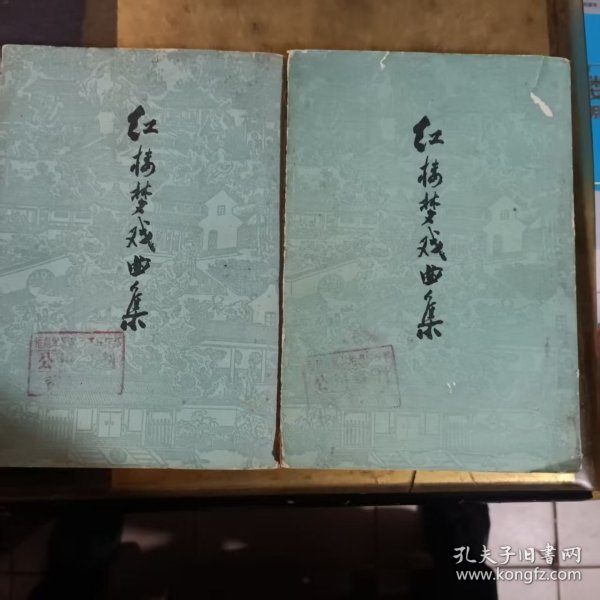 红楼梦戏曲集
红楼梦戏曲集
孔夫子旧书网
www.kongfz.com